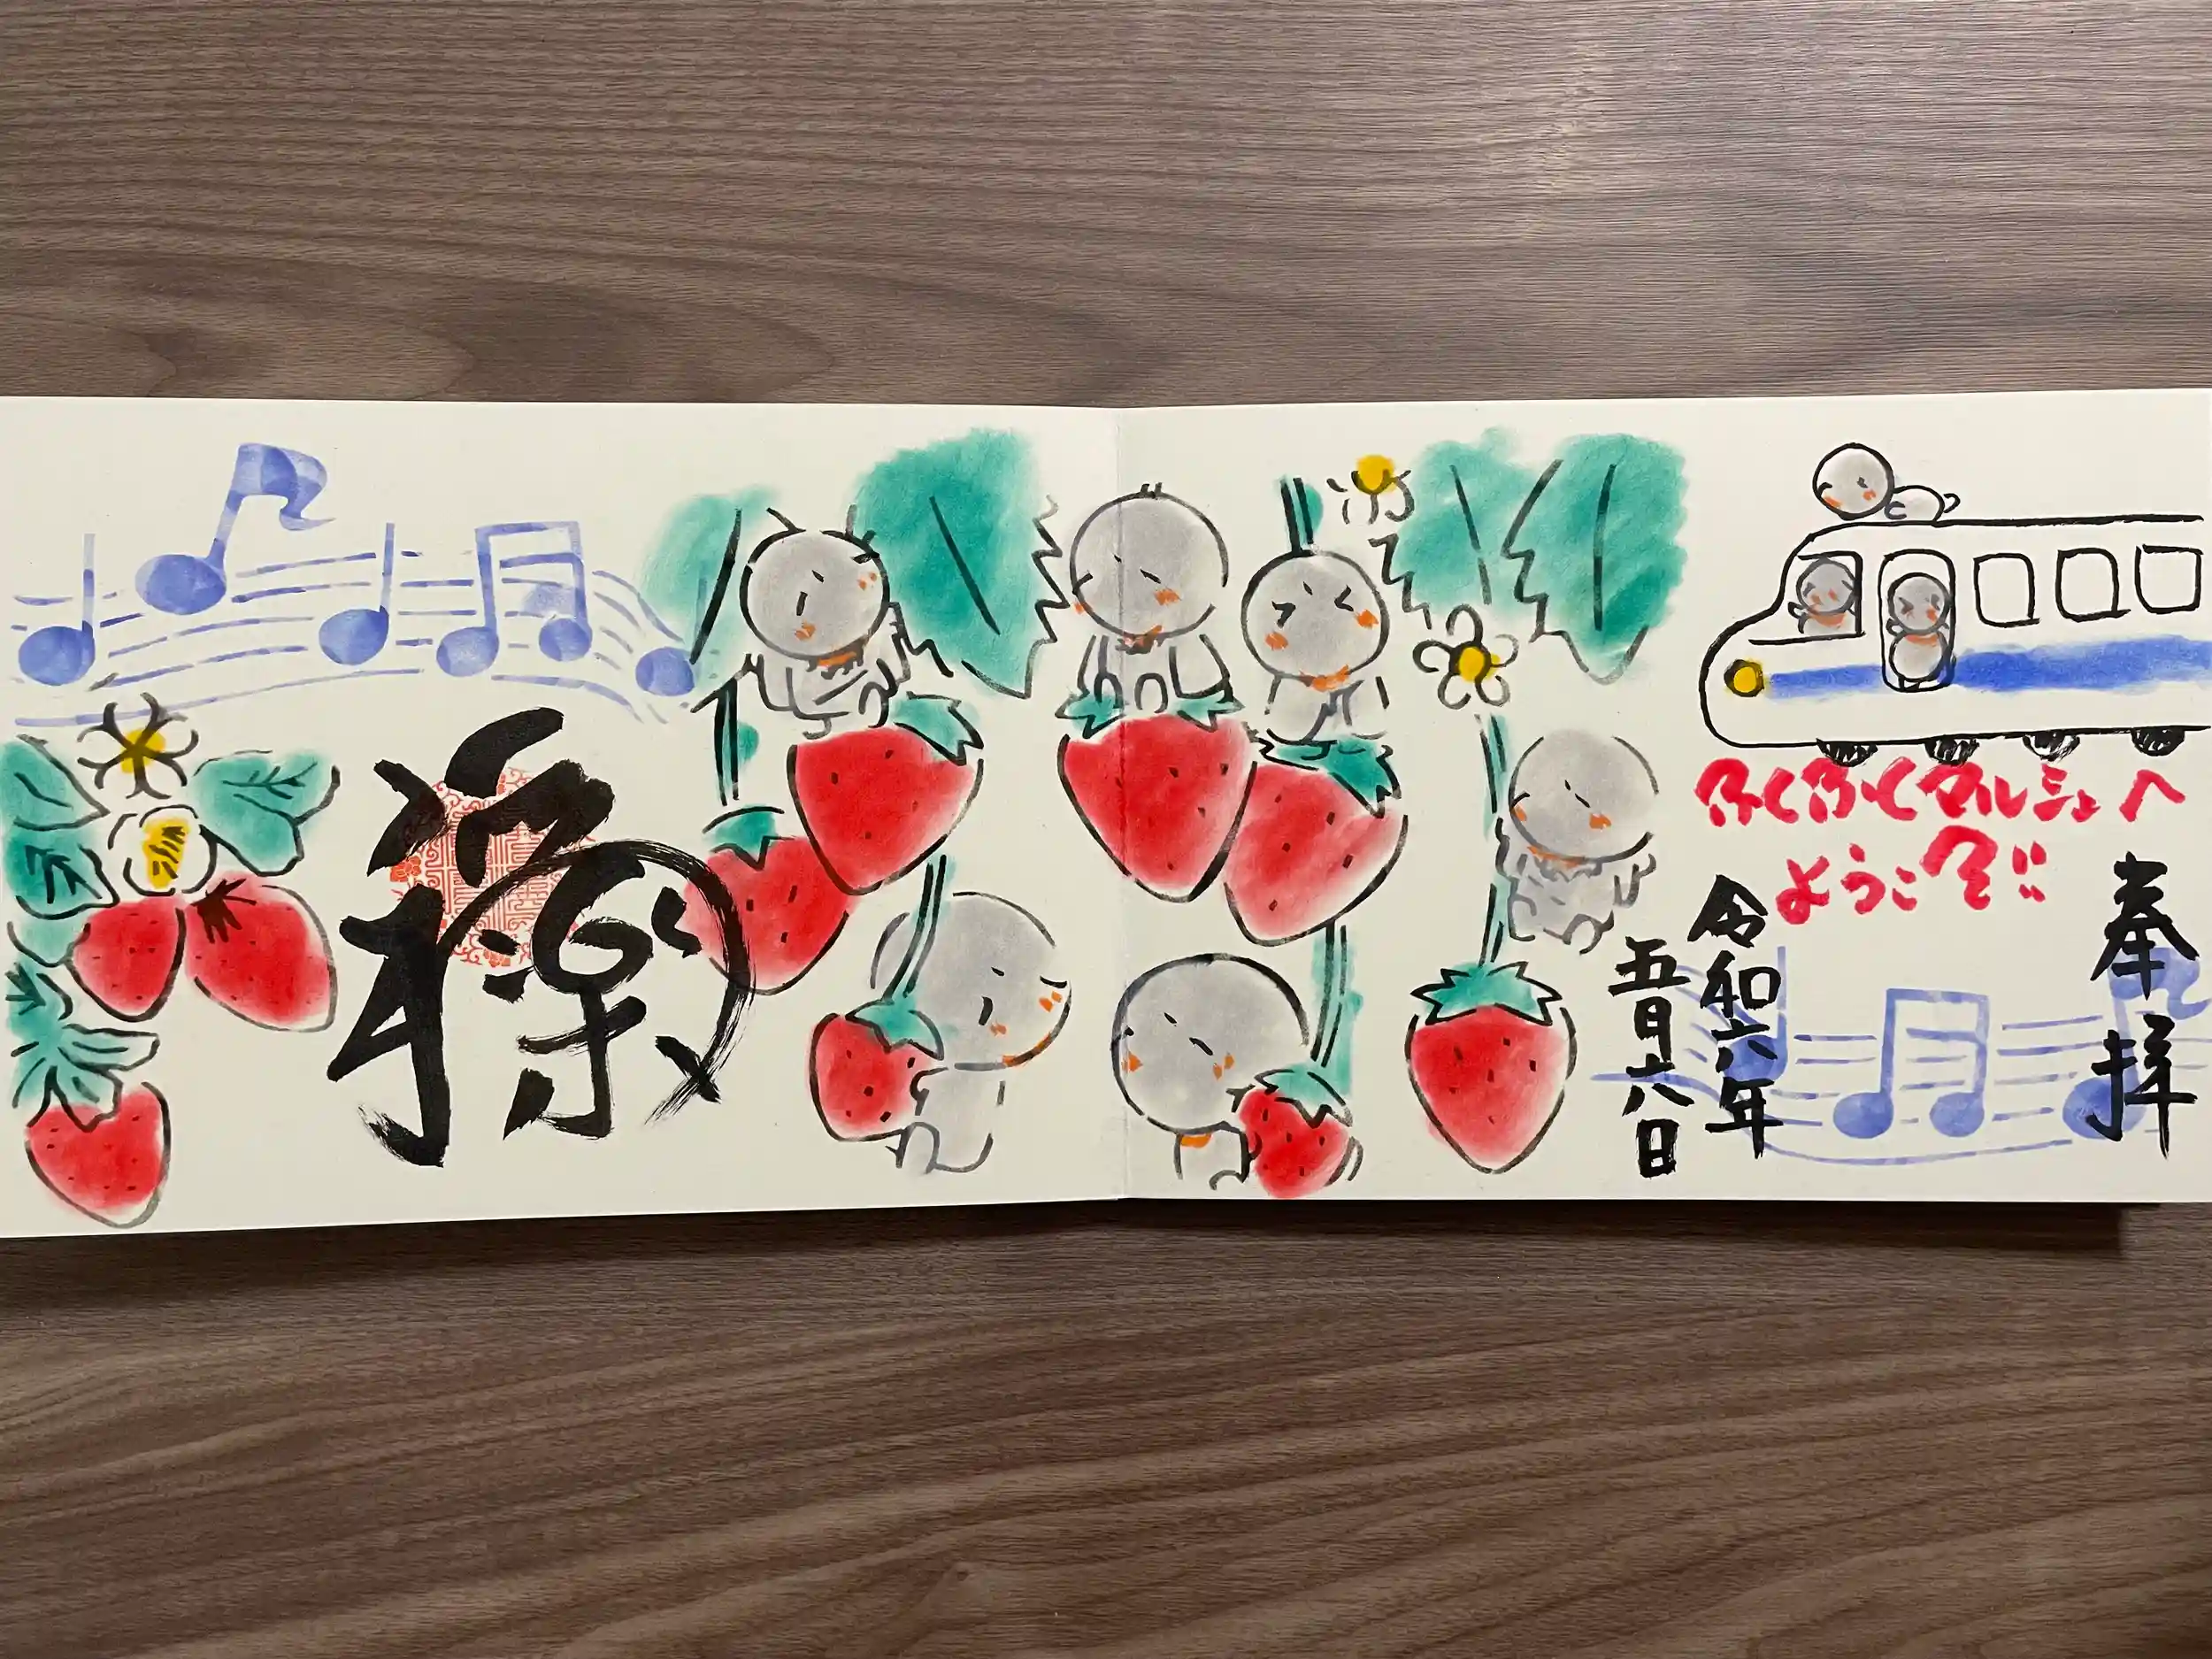 奉拝
ふくふくマルシェへ
ようこそ!!
令和六年
五月十八日